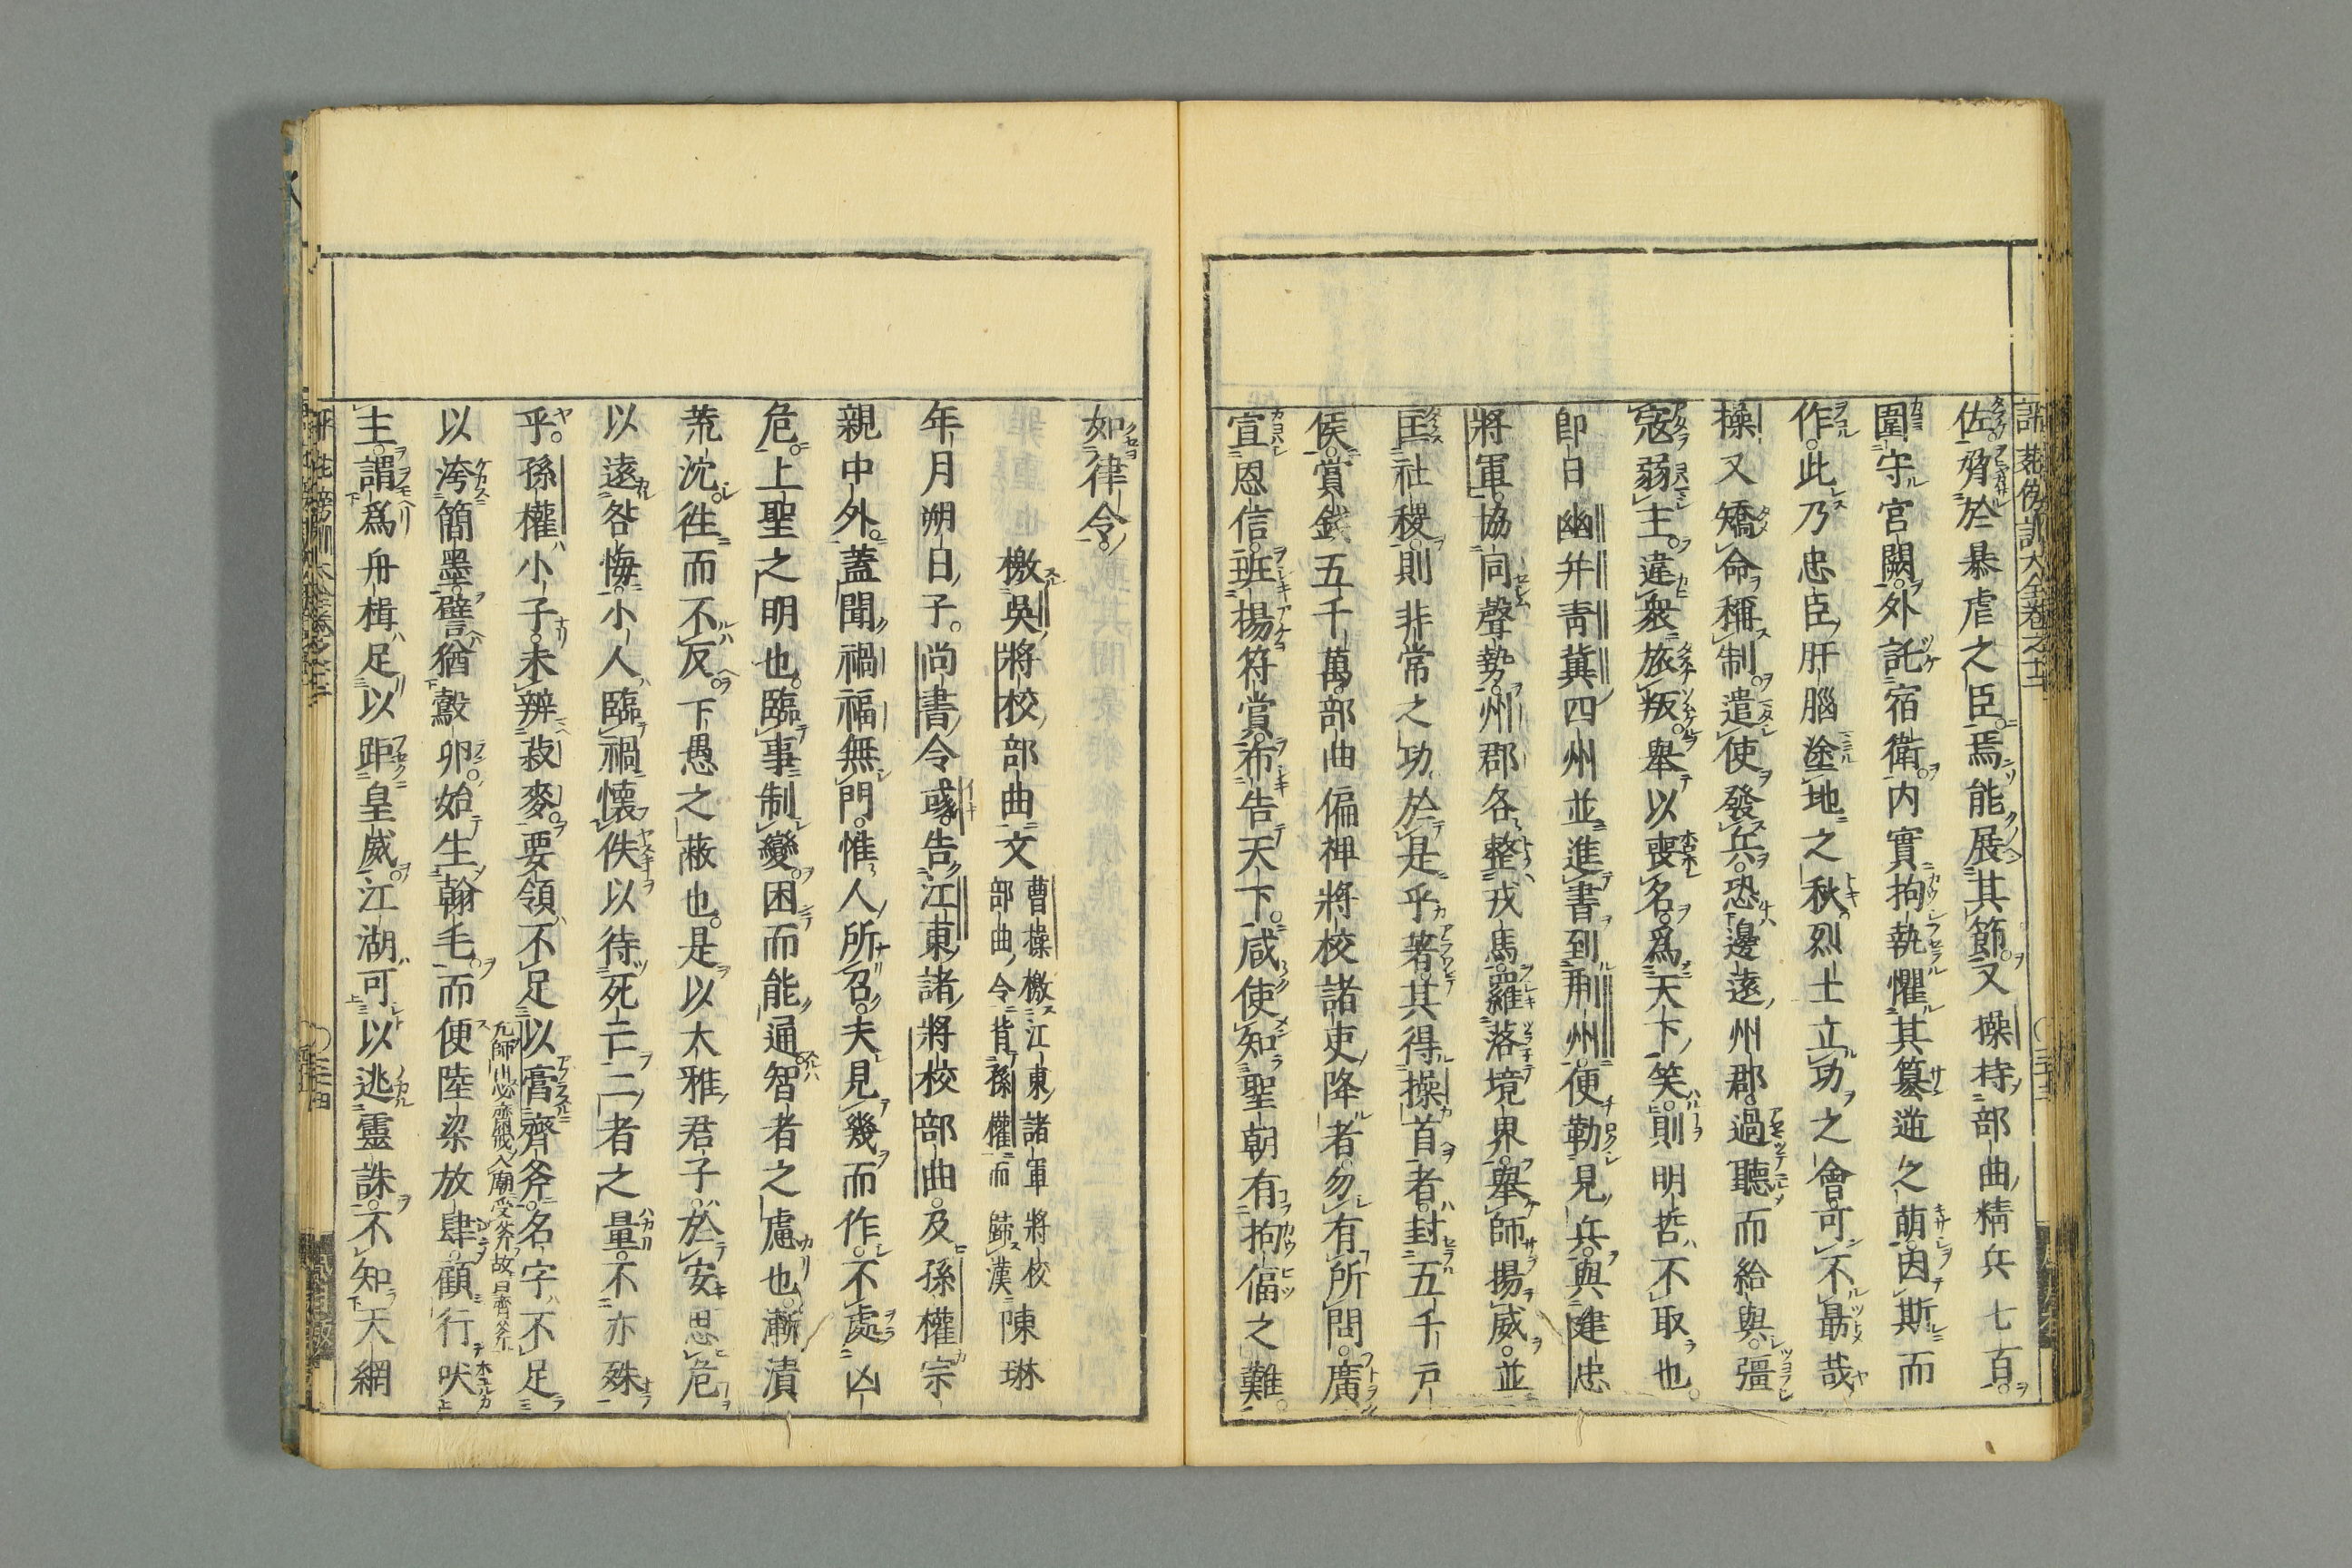 佐脅於暴虐之臣焉能展其節又操持部曲精兵七百
圍守宮闕外託宿衛内實拘執懼其簒逆之萌因斯而
作此乃忠臣肝腦塗地之秋烈士立功之會可不勗哉
操又矯命稱制遣使發兵恐邊遠州郡過聽而給與彊
寇弱主違衆旅叛舉以喪名爲天下笑則明哲不取也
即日幽并靑冀四州並進書到荆州便勒見兵與建忠
將軍協同聲勢州郡各整戎馬羅落境界舉師揚威並
匡社稷則非常之功於是乎著其得操首者封五千戸
侯賞錢五千萬部曲偏裨將校諸吏降者勿有所問廣
宣恩信班揚符賞布告天下咸使知聖朝有拘偪之難
如律令
檄吳將校部曲文 曹操檄江東諸軍將校部曲令背孫權而歸漢 陳琳
年月朔日子尚書令彧告江東諸將校部曲及孫權宗
親中外蓋聞禍福無門惟人所召夫見幾而作不處凶
危上聖之明也臨事制變困而能通智者之慮也漸漬
荒沈往而不反下愚之蔽也是以大雅君子於安思危
以遠咎悔小人臨禍懐佚以待死亡二者之量不亦殊
乎孫權小子未辨菽麥要領不足以膏齊斧名字不足
九師出必齋戒入廟受斧故曰齊斧
以洿簡墨譬猶鷇卵始生翰毛而便陸梁放肆顧行吠
主謂爲舟楫足以距皇威江湖可以逃靈誅不知天網